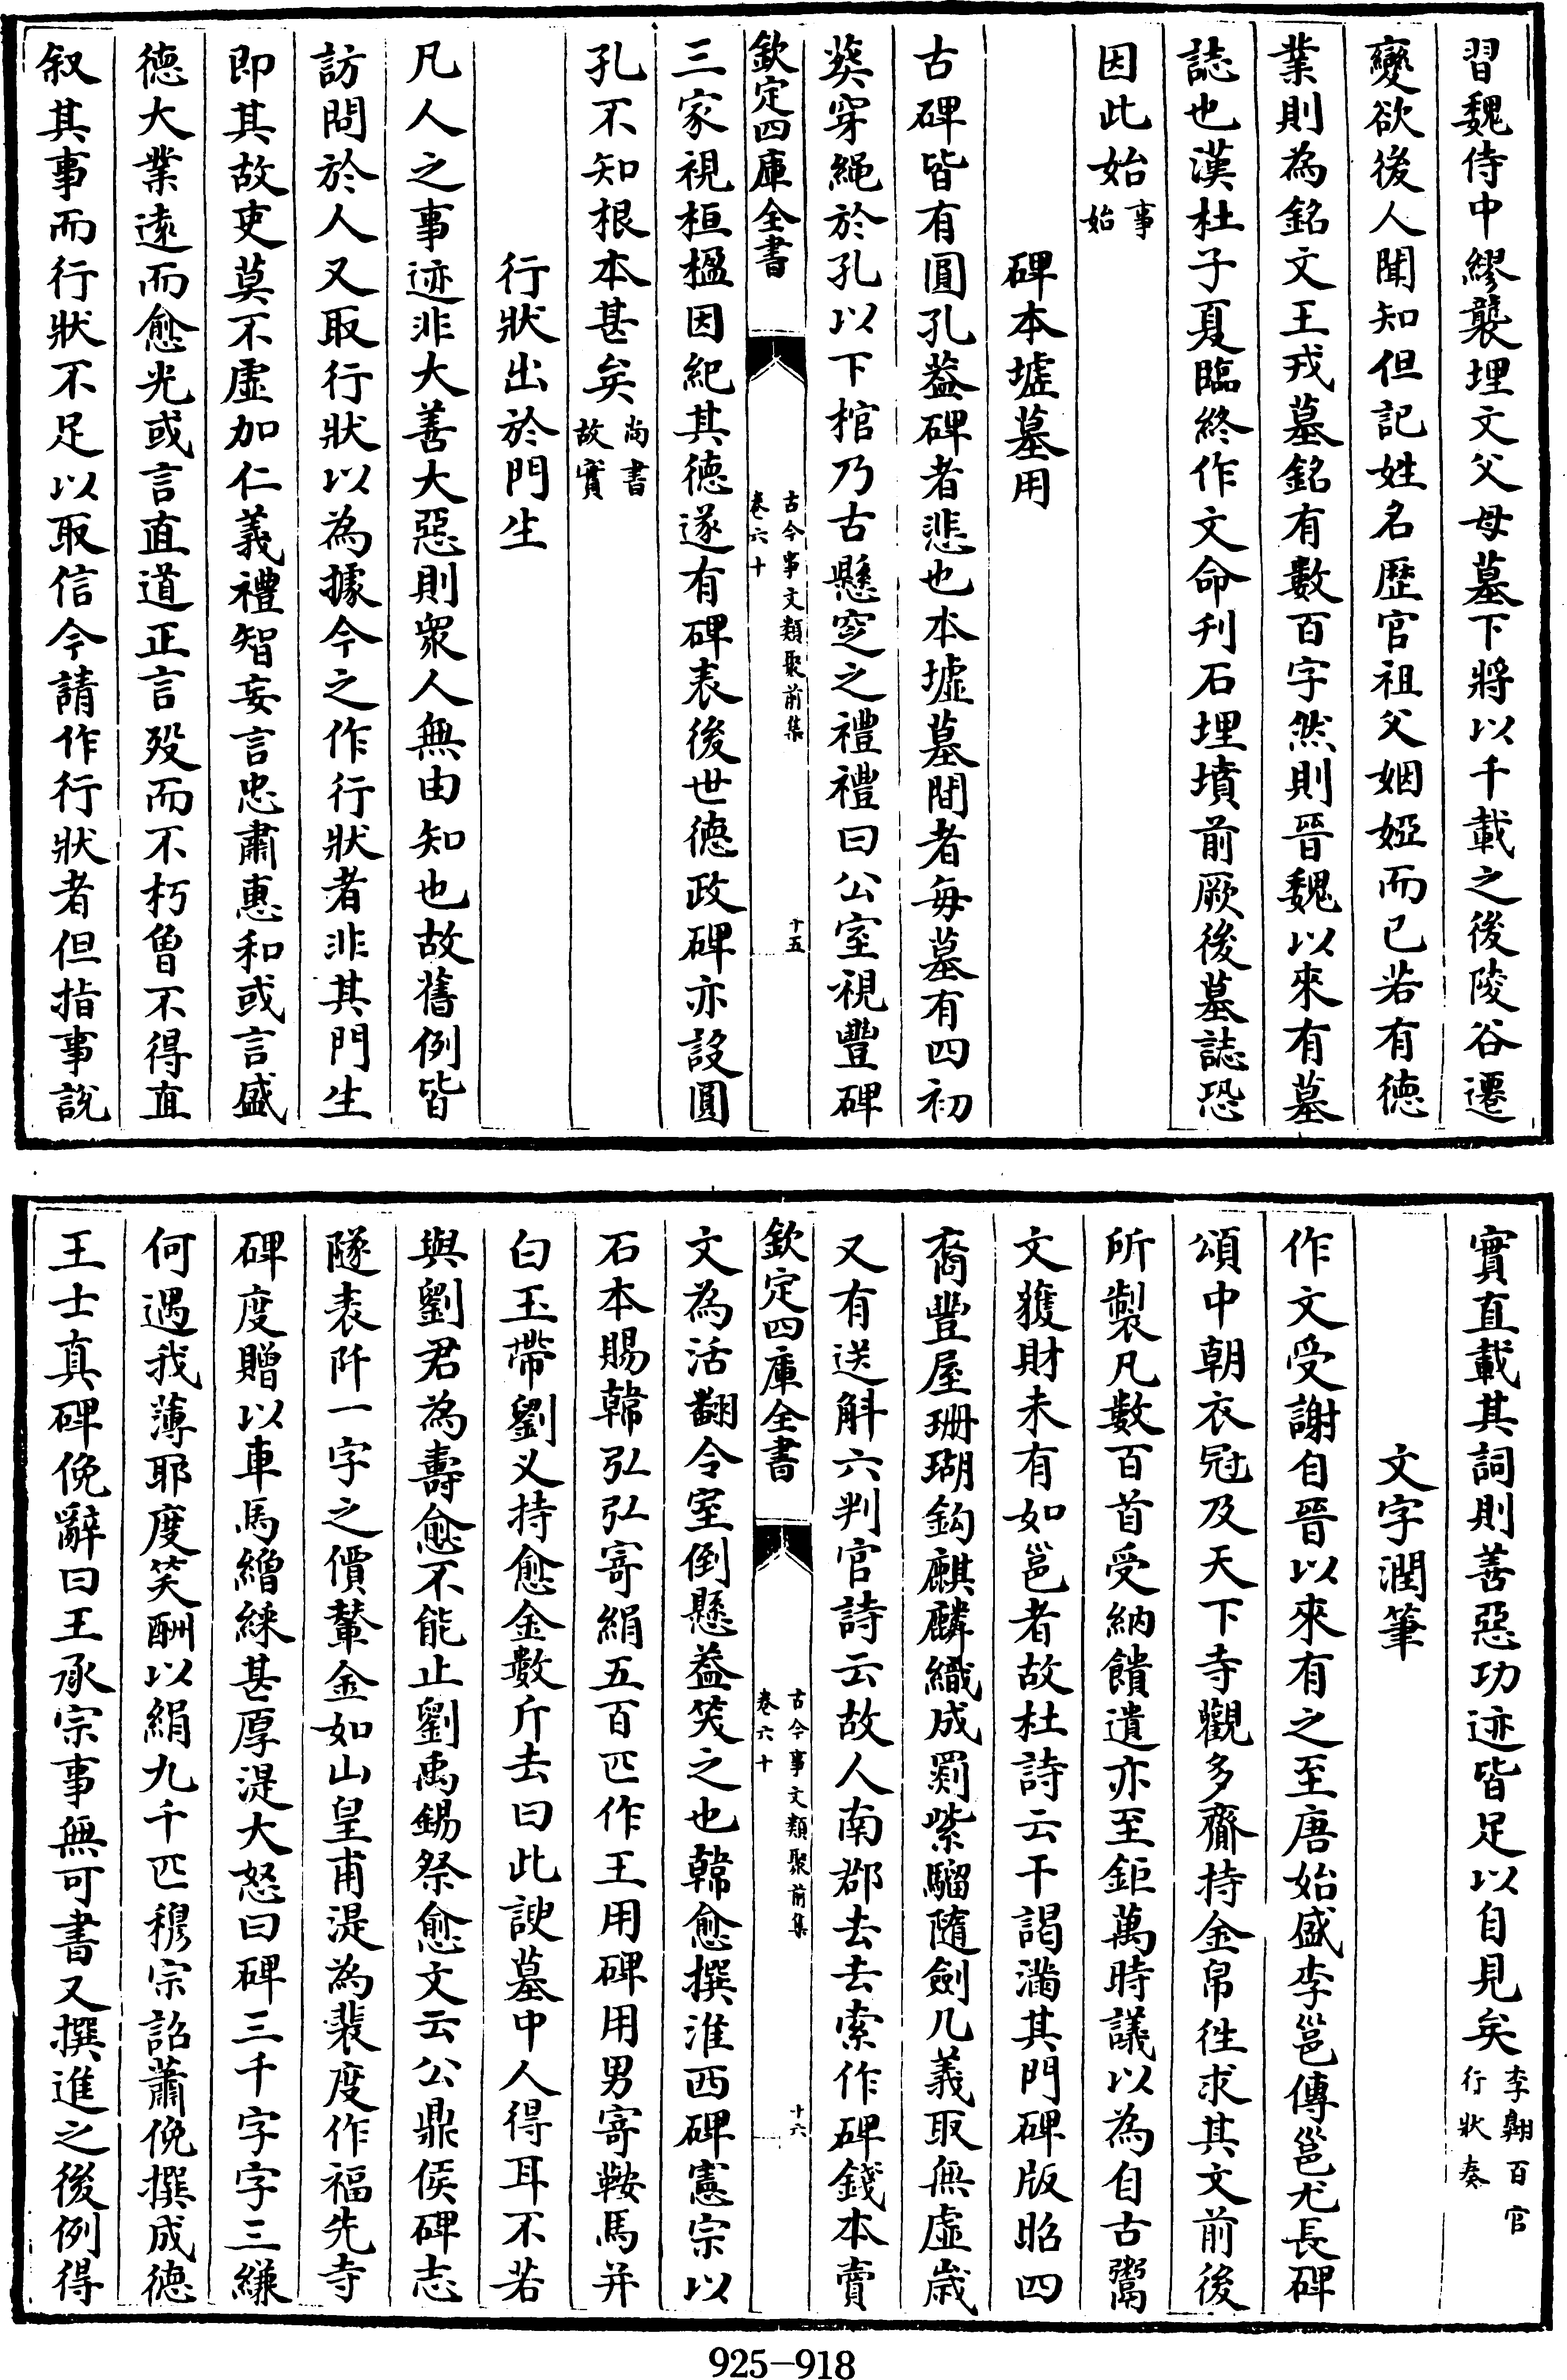 習魏侍中繆襲埋文父母墓下將以千載之後陵谷遷
變欲後人聞知但記姓名歴官祖父姻婭而已若有徳
業則為銘文王戎墓銘有數百字然則晉魏以來有墓
誌也漢杜子夏臨終作文命刋石埋墳前厥後墓誌恐
因此始事始
碑本墟墓用
古碑皆有圓孔葢碑者悲也本墟墓間者每墓有四初
葬穿繩於孔以下棺乃古懸窆之禮禮曰公室視豐碑
欽定四庫全書
古今事文類聚前集
卷六十
十五
三家視桓楹因紀其徳遂有碑表後世徳政碑亦設圓
孔不知根本甚矣尚書故實
行狀出於門生
凡人之事迹非大善大惡則衆人無由知也故舊例皆
訪問於人又取行狀以為據今之作行狀者非其門生
即其故吏莫不虚加仁義禮智妄言忠肅惠和或言盛
徳大業逺而愈光或言直道正言殁而不朽曽不得直
叙其事而行狀不足以取信今請作行狀者但指事說
實直載其詞則善惡功迹皆足以自見矣李翺百官行狀奏
文字潤筆
作文受謝自晉以來有之至唐始盛李邕傳邕尤長碑
頌中朝衣冠及天下寺觀多齎持金帛徃求其文前後
所製凡數百首受納饋遺亦至鉅萬時議以為自古鬻
文獲財未有如邕者故杜詩云干謁滿其門碑版照四
裔豐屋珊瑚鈎麒麟織成罽紫騮隨劍几義取無虚歳
又有送斛六判官詩云故人南郡去去索作碑錢本賣
欽定四庫全書
古今事文類聚前集
卷六十
十六
文為活翻令室倒懸葢笑之也韓愈撰淮西碑憲宗以
石本賜韓弘弘寄絹五百匹作王用碑用男寄鞍馬并
白玉帶劉义持愈金數斤去曰此諛墓中人得耳不若
與劉君為壽愈不能止劉禹錫祭愈文云公鼎侯碑志
隧表阡一字之價輦金如山皇甫湜為裴度作福先寺
碑度贈以車馬繒綵甚厚湜大怒曰碑三千字字三縑
何遇我薄耶度笑酬以絹九千匹穆宗詔蕭俛撰成徳
王士真碑俛辭曰王承宗事無可書又撰進之後例得
925-918